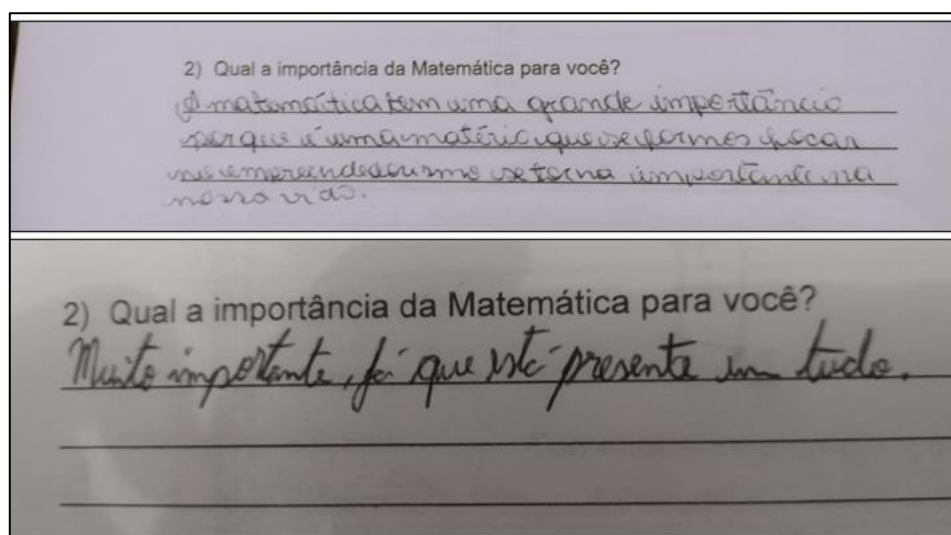 2) Qual a importância da Matemática para você?
A matemática tem uma grande importância
porque é uma matéria que se formos focar
no empreendedorismo se torna importante na
nossa vida.
2) Qual a importância da Matemática para você?
Muito importante, já que está presente em tudo.